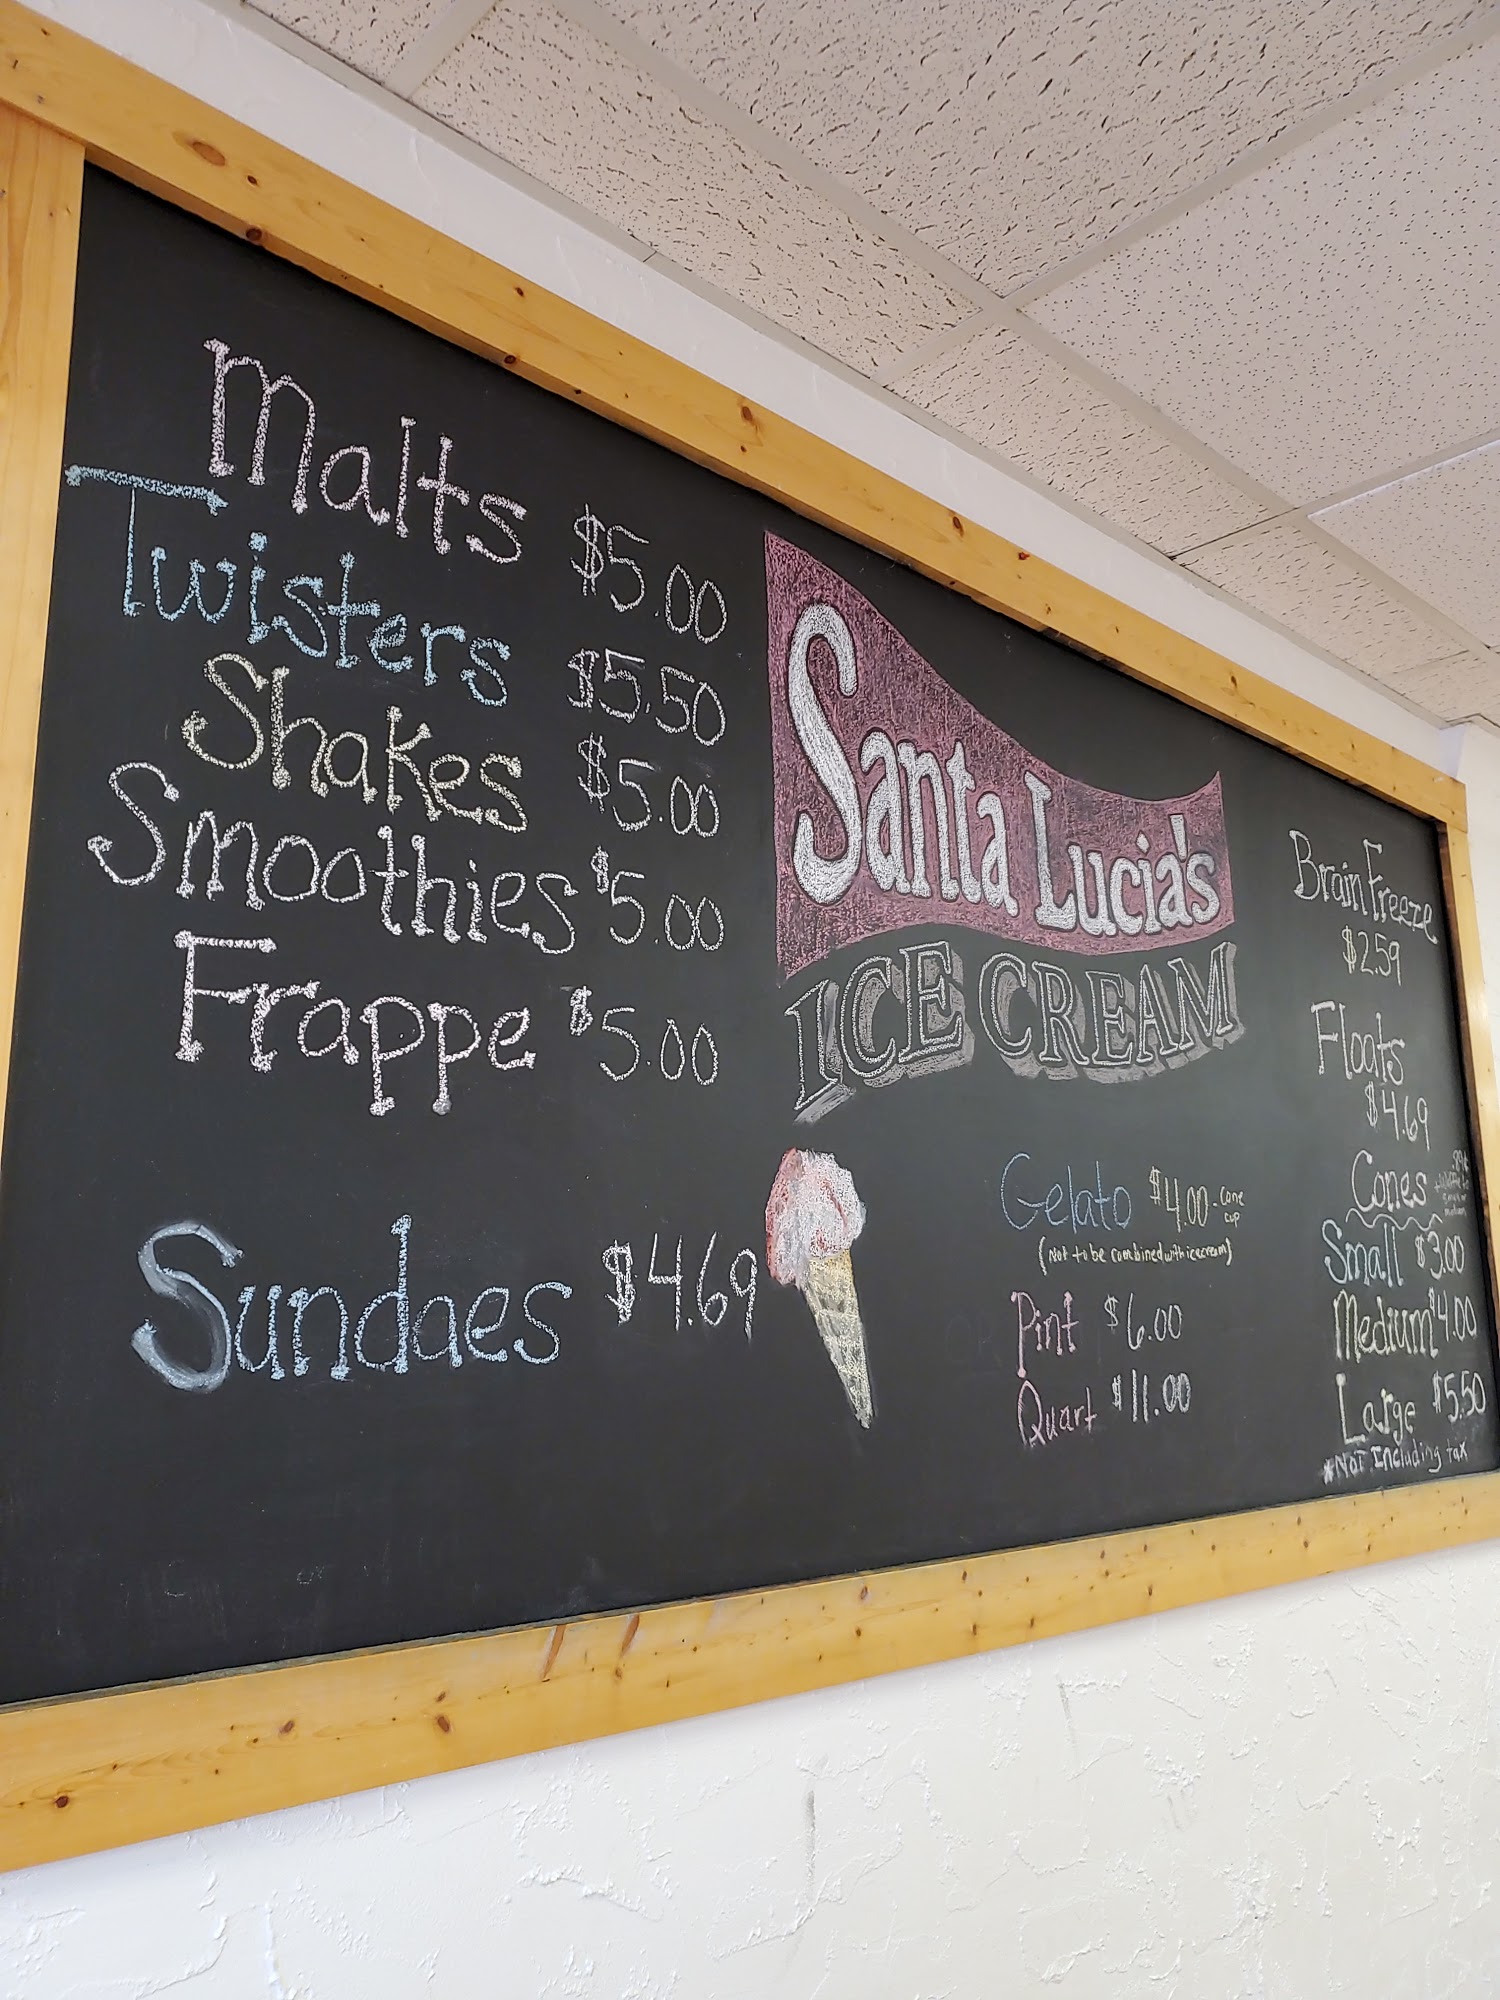 Malts $5.00
Twisters $5.50
Shakes $5.00
Smoothies $5.00
Frappe $5.00
Sundaes $4.69
Santa Lucia's
ICE CREAM
Gelato $4.00 - cone
cup
(Not to be combined with icecream)
Pint $6.00
Quart $11.00
Brain Freeze
$2.59
Floats
$4.69
Cones
Small $3.00
Medium $4.00
Large $5.50
*Not Including tax